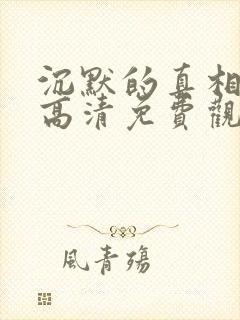 沉默的真相
高清免費觀
風青殤